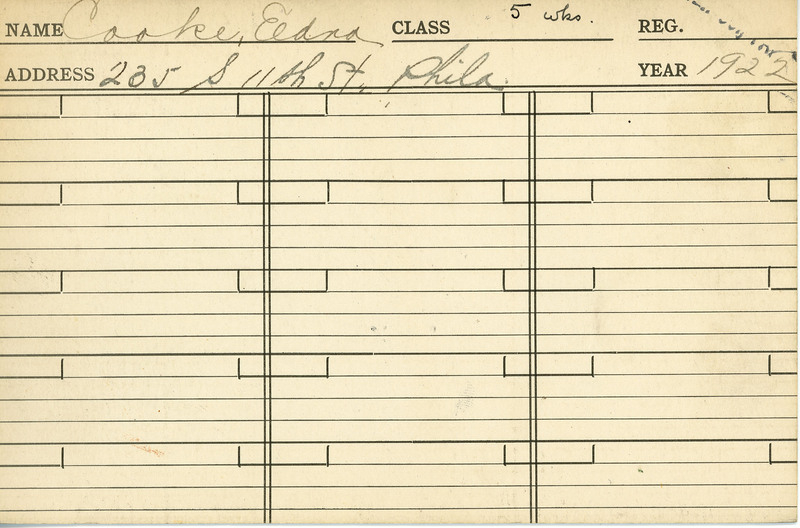 NAME Cooke, Edna CLASS 5 wks. REG.
ADDRESS 235 S 11th St. Phila. YEAR 1922